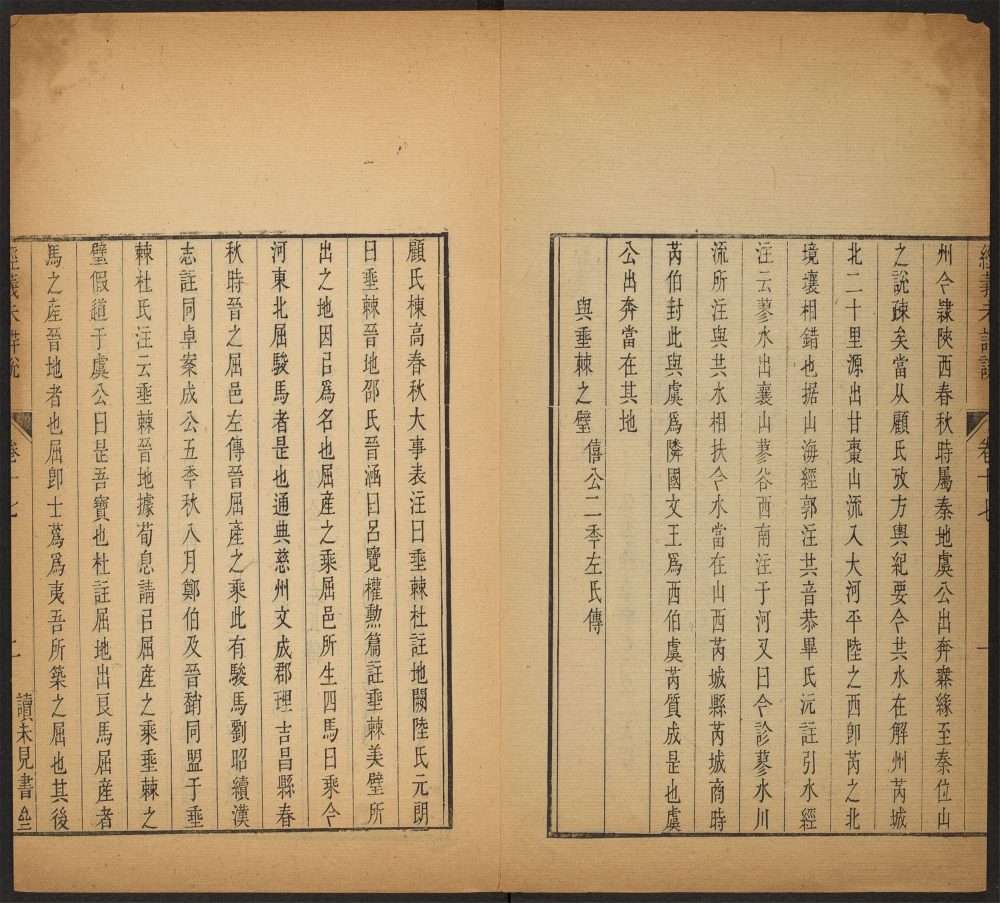 州今隷陝西春秋時屬秦地虞公出奔無緣至秦位山
之說疎矣當从顧氏攷方輿紀要今共水在解州芮城
北二十里源出甘棗山流入大河平陸之西卽芮之北
境壤相錯也据山海經郭注共音恭畢氏沅註引水經
注云蓼水出襄山蓼谷西南注于河又曰今診蓼水川
流所注與共水相扶今水當在山西芮城縣芮城商時
芮伯封此與虞爲隣國文王爲西伯虞芮質成是也虞
公出奔當在其地
與垂棘之璧 僖公二秊左氏傳
顧氏棟高春秋大事表注曰垂棘杜註地闕陸氏元朗
曰垂棘晉地邵氏晉涵曰呂覽權勳篇註垂棘美璧所
出之地因㠯爲名也屈産之乘屈邑所生四馬曰乘今
河東北屈駿馬者是也通典慈州文成郡理吉昌縣春
秋時晉之屈邑左傳晉屈産之乘此有駿馬劉昭續漢
志註同卓案成公五秊秋八月鄭伯及晉趙同盟于垂
棘杜氏注云垂棘晉地據荀息請㠯屈産之乘垂棘之
璧假道于虞公曰是吾寶也杜註屈地出良馬屈産者
馬之産晉地者也屈卽士蒍爲夷吾所築之屈也其後
卷十七
讀未見書